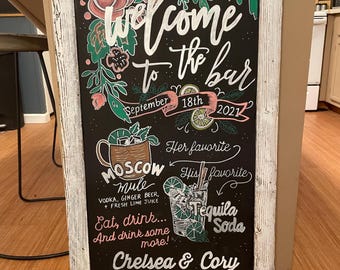 Welcome
to the bar
September 18th 2021
Her favorite
MOSCOW
mule
VODKA, GINGER BEER,
+ FRESH LIME JUICE
His favorite
Tequila
Soda
Eat, drink...
And drink some
more!
Chelsea & Cory